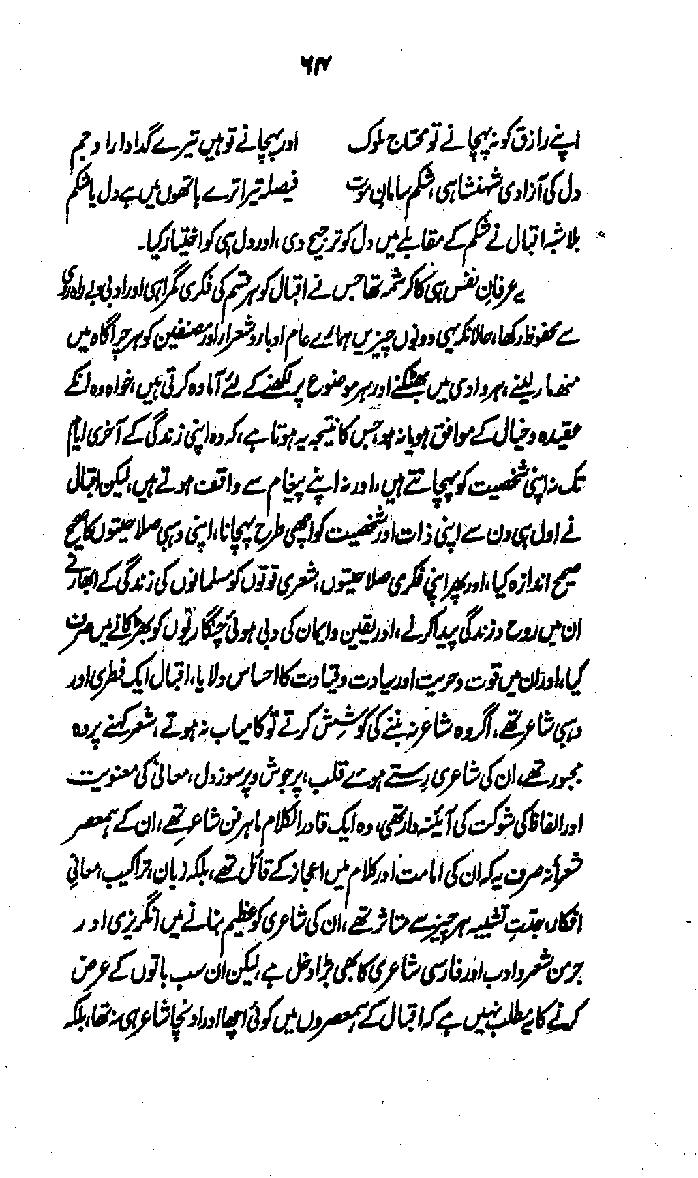 ۶۴
اپنے رازق کو نہ پہچانے تو محتاج ملوک اور پہچانے تو ہیں تیرے گدا دارا و جم
دل کی آزادی شہنشاہی، شکم سامان موت فیصلہ تیرا ترے ہاتھوں میں ہے دل یا شکم
بلاشبہ اقبال نے شکم کے مقابلے میں دل کو ترجیح دی، اور دل ہی کو اختیار کیا۔
یہ عرفانِ نفس ہی کا کرشمہ تھا جس نے اقبال کو ہر قسم کی فکری گمراہی اور ادبی بے راہ روی
سے محفوظ رکھا، حالانکہ یہی دونوں چیزیں ہمارے عام ادباء و شعراء اور مصنفین کو ہر چراگاہ میں
منھ مار لینے، ہر وادی میں بھٹکنے اور ہر موضوع پر لکھنے کے لئے آمادہ کرتی ہیں، خواہ وہ انکے
عقیدہ و خیال کے موافق ہو یا نہ ہو، جس کا نتیجہ یہ ہوتا ہے، کہ وہ اپنی زندگی کے آخری ایام
تک نہ اپنی شخصیت کو پہچانتے ہیں، اور نہ اپنے پیغام سے واقف ہوتے ہیں، لیکن اقبال
نے اول ہی دن سے اپنی ذات اور شخصیت کو اچھی طرح پہچانا، اپنی وہبی صلاحیتوں کا صحیح
صحیح اندازہ کیا، اور پھر اپنی فکری صلاحیتوں، شعری قوتوں کو مسلمانوں کی زندگی کے ابھارنے
ان میں روح و زندگی پیدا کرنے، اور یقین و ایمان کی دبی ہوئی چنگاریوں کو بھڑکانے میں صرف
کیا، اور ان میں قوت و حریت اور سیادت و قیادت کا احساس دلایا، اقبال ایک فطری اور
وہبی شاعر تھے، اگر وہ شاعر نہ بننے کی کوشش کرتے تو کامیاب نہ ہوتے، شعر کہنے پر وہ
مجبور تھے، ان کی شاعری رستے ہوئے قلب، پرجوش و پرسوز دل، معانی کی معنویت
اور الفاظ کی شوکت کی آئینہ دار تھی، وہ ایک قادر الکلام ماہر فن شاعر تھے، ان کے ہمعصر
شعراء نہ صرف یہ کہ ان کی امامت اور کلام میں اعجاز کے قائل تھے، بلکہ زبان، تراکیب، معانی
افکار، جدتِ تشبیہ ہر چیز سے متاثر تھے، ان کی شاعری کو عظیم بنانے میں انگریزی اور
جرمن شعر و ادب اور فارسی شاعری کا بھی بڑا دخل ہے، لیکن ان سب باتوں کے عرض
کرنے کا یہ مطلب نہیں ہے کہ اقبال کے ہمعصروں میں کوئی اچھا اور اونچا شاعر ہی نہ تھا، بلکہ